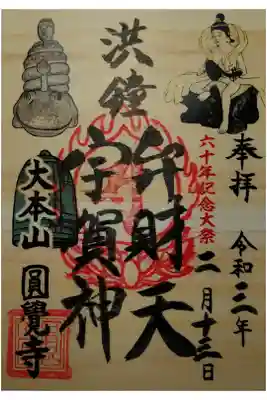 奉拝 令和三年
六十年記念大祭
二月十三日
洪鐘
弁財天
宇賀神
大本山
圓覺寺